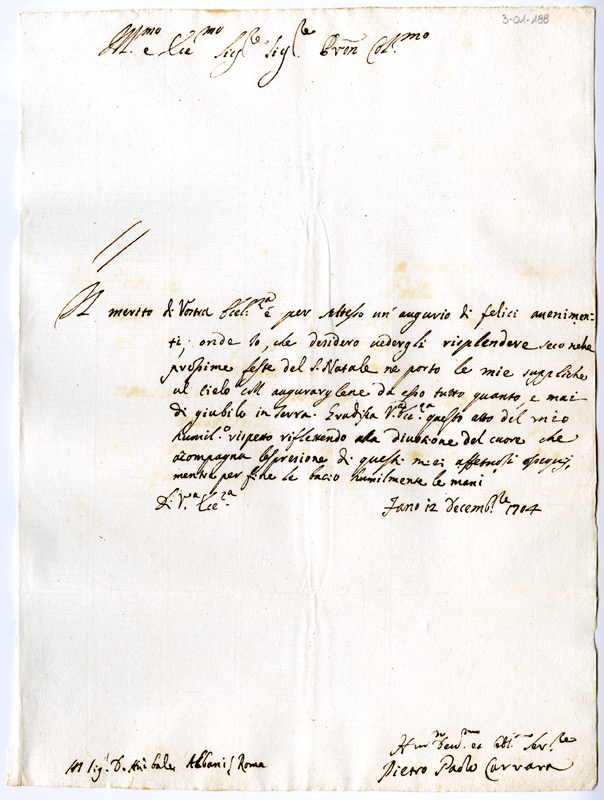 3-01-188
Ill.mo e Ecc.mo Sig.re Sig.re Pron Col.mo
Il merito di Vostra Eccl.za è per stesso un' augurio di felici auenimen=
ti, onde Io, che desidero uedergli risplendere seco nelle
prossime feste del S. Natale ne porto le mie suppliche
al Cielo coll augurarglene da esso tutto quanto e mai
di giubilo in terra. Gradisca V.ra Ecc.za questo atto del mio
humil.o rispetto riflettendo alla diuozione del cuore che
acompagna l'espresione di questi miei affettuosi ossequij,
mentre per fine le bacio humilmente le mani
Di V.ra Ecc.za
Fano 12 Decemb.re 1704
Hum Deu.mo et Obl.mo Ser.re
Pietro Paolo Carrara
Sig.r D. Anibale Albani Roma